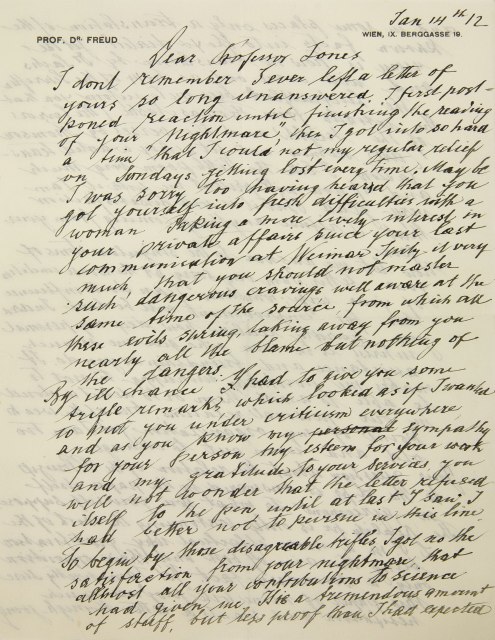 Jan 14th 12
PROF. DR. FREUD
WIEN, IX. BERGGASSE 19.
Dear Professor Jones
I dont remember I ever left a letter of
yours so long unanswered. I first post-
poned reaction until finishing the reading
of your Nightmare, then I got into so hard
a time, that I could not my regular relief
on Sundays getting lost every time. May be
I was sorry too having heared that you
got yourself into fresh difficulties with a
woman. Taking a more lively interest in
your private affairs since your last
communication at Weimar I pity it very
much, that you should not master
such dangerous cravings well aware at the
same time of the source from which all
these evils spring, taking away from you
nearly all the blame but nothing of
the dangers.
By ill chance I had to give you some
trifle remarks which looked as if I wanted
to put you under criticism everywhere
and as you know my personal sympathy
for your person my esteem for your work
and my gratitude to your services, you
will not wonder that the letter refused
itself to the pen until at last I saw: I
had better not to pursue in this line.
To begin by those disagreable trifles I got no the
satisfaction from your nightmare that
allmost all your contributions to science
had given me. It is a tremendous amount
of stuff, but less proof than I had expected